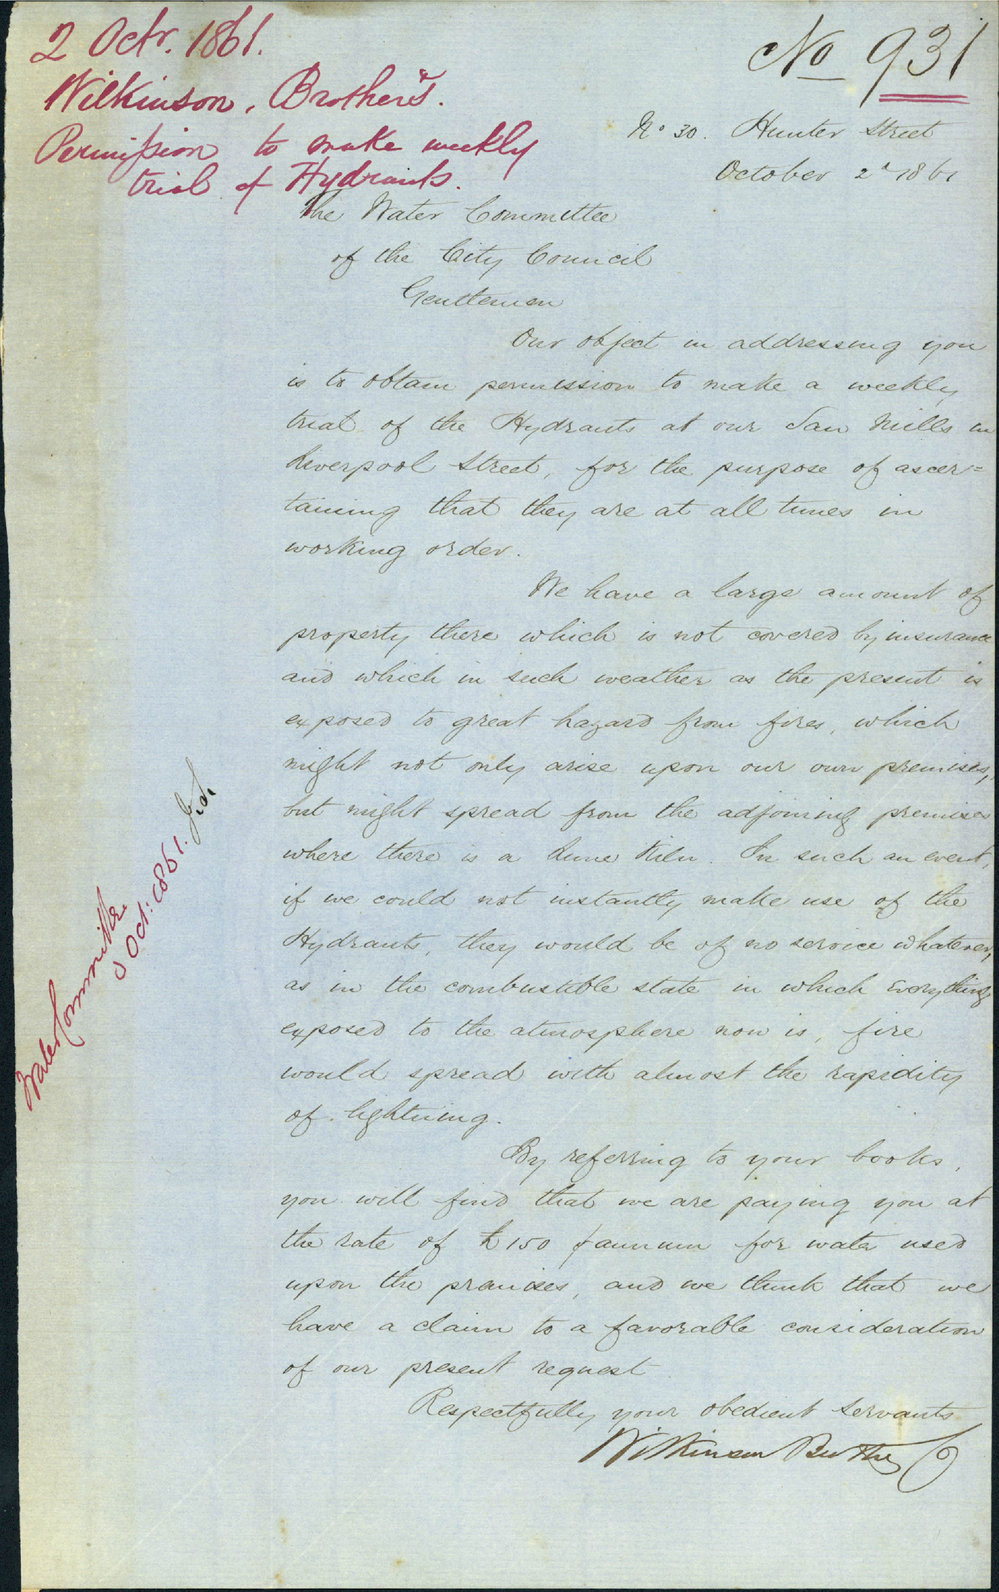 2 Octr. 1861.
Wilkinson, Brothers.
Permission to make weekly
trial of Hydrants.
No 931
No 30. Hunter Street
October 2d 1861
The Water Committee
of the City Council
Gentlemen
Our object in addressing you
is to obtain permission to make a weekly
trial of the Hydrants at our Saw Mills in
Liverpool Street, for the purpose of ascer=
taining that they are at all times in
working order.
We have a large amount of
property there which is not covered by insurance
and which in such weather as the present is
exposed to great hazard from fires, which
might not only arise upon our own premises,
but might spread from the adjoining premises
where there is a Lime Kiln. In such an event,
if we could not instantly make use of the
Hydrants, they would be of no service whatever,
as in the combustible state in which everything
exposed to the atmosphere now is, fire
would spread with almost the rapidity
of lightning.
By referring to your books,
you will find that we are paying you at
the rate of £150 ⅌ annum for water used
upon the premises, and we think that we
have a claim to a favorable consideration
of our present request
Respectfully your obedient servants
Wilkinson Brothers Co
Water Committee
3 Oct: 1861.